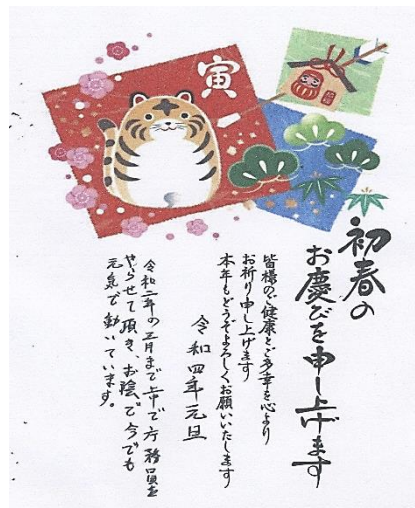 寅
初春の
お慶びを申し上げます
皆様のご健康とご多幸を心より
お祈り申し上げます
本年もどうぞよろしくお願いいたします
令和四年元旦
令和二年の三月まで で庁務員を
やらせて頂き、お陰で今でも
元気で動いています。